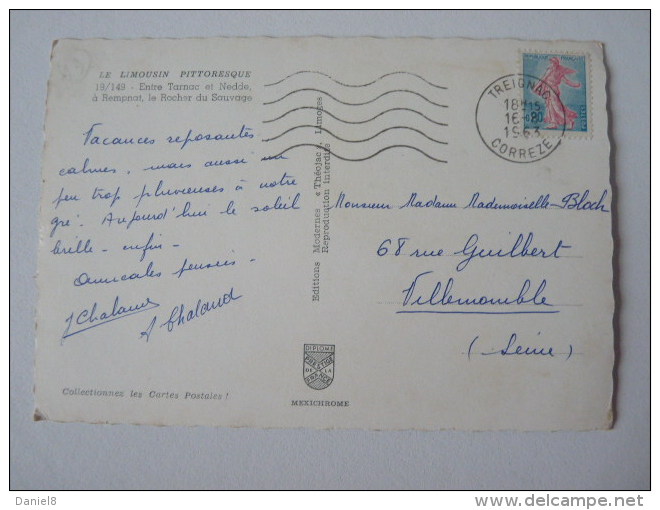 LE LIMOUSIN PITTORESQUE
19/149 - Entre Tarnac et Nedde,
à Rempnat, le Rocher du Sauvage
Vacances reposantes
calmes, mais aussi un
peu trop pluvieuses à notre
gré. Aujourd'hui le soleil
brille - enfin -
Amicales pensées -
J Chaland
A Chaland
Collectionnez les Cartes Postales !
Editions Modernes « Théojac », Limoges
Reproduction interdite
DIPLOME
PRESTIGE
DE LA
FRANCE
MEXICHROME
TREIGNAC
18H15
16-8
1963
CORREZE
Monsieur Madame Mademoiselle Bloch
68 rue Guilbert
Villemomble
(Seine)
Daniel8
http://www.delcampe.net